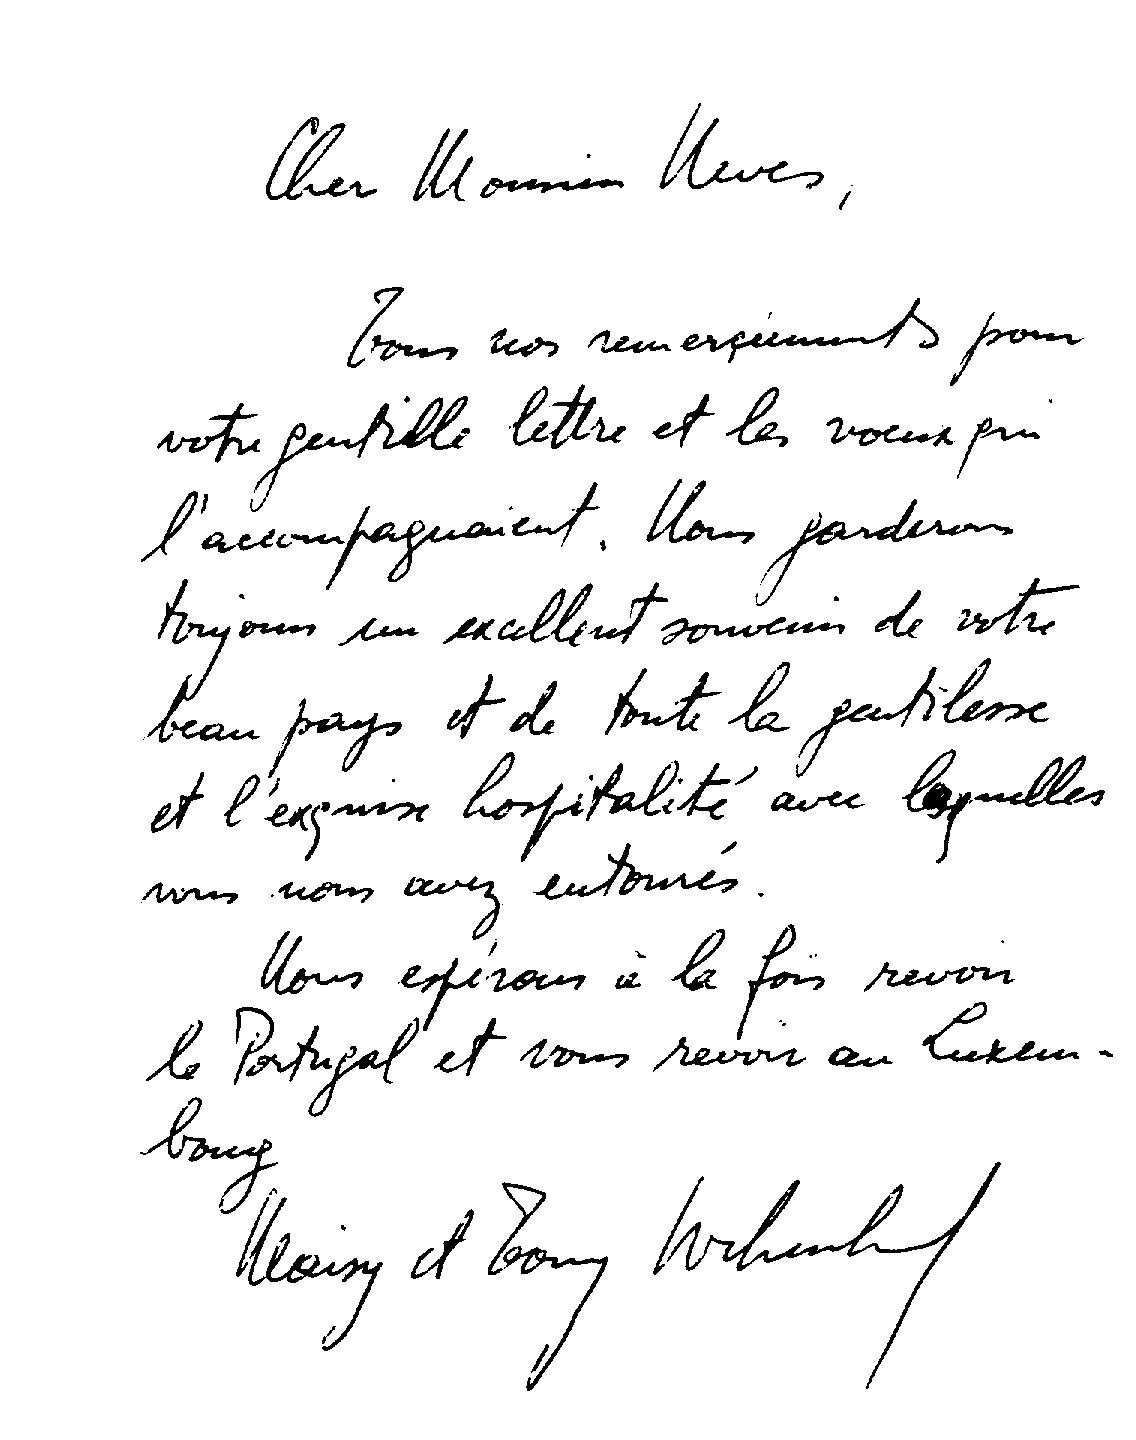 Cher Monsieur Neves,
Tous nos remerçiements pour
votre gentille lettre et les voeux qui
l'accompagnaient. Nous garderons
toujours un excellent souvenir de votre
beau pays et de toute la gentilesse
et l'exquise hospitalité avec lesquelles
vous nous avez entourés.
Nous espérons à la fois revoir
le Portugal et vous revoir au Luxem-
bourg
Maisy et Tony